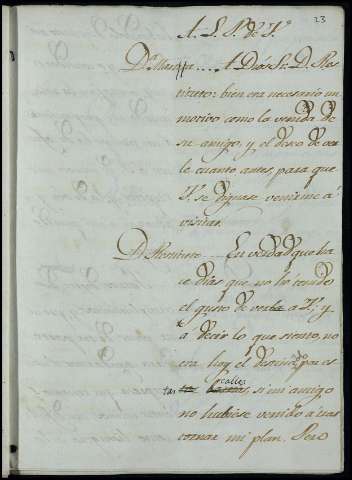 23
A. L. P. de F.
Da. Mar ... A Dios Sr. D. Ro-
berto: bien era necesario un
motivo como la venida de
su amigo, y el deseo de ver-
le cuanto antes, para que
V. se dignase venirme á
visitar.
D. En verdad que ha-
ce dias que no he tenido
el gusto de verla á V., y
á decir lo que siento, no
era hoy el destinado para es-
tas calles, si mi amigo
no hubiese venido á tras-
tornar mi plan. Pero